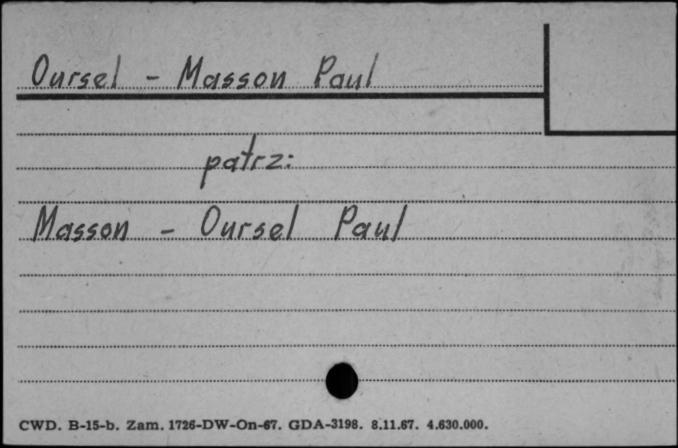 Oursel - Masson Paul
patrz:
Masson - Oursel Paul
CWD. B-15-b. Zam. 1726-DW-On-67. GDA-3198. 8.11.67. 4.630.000.